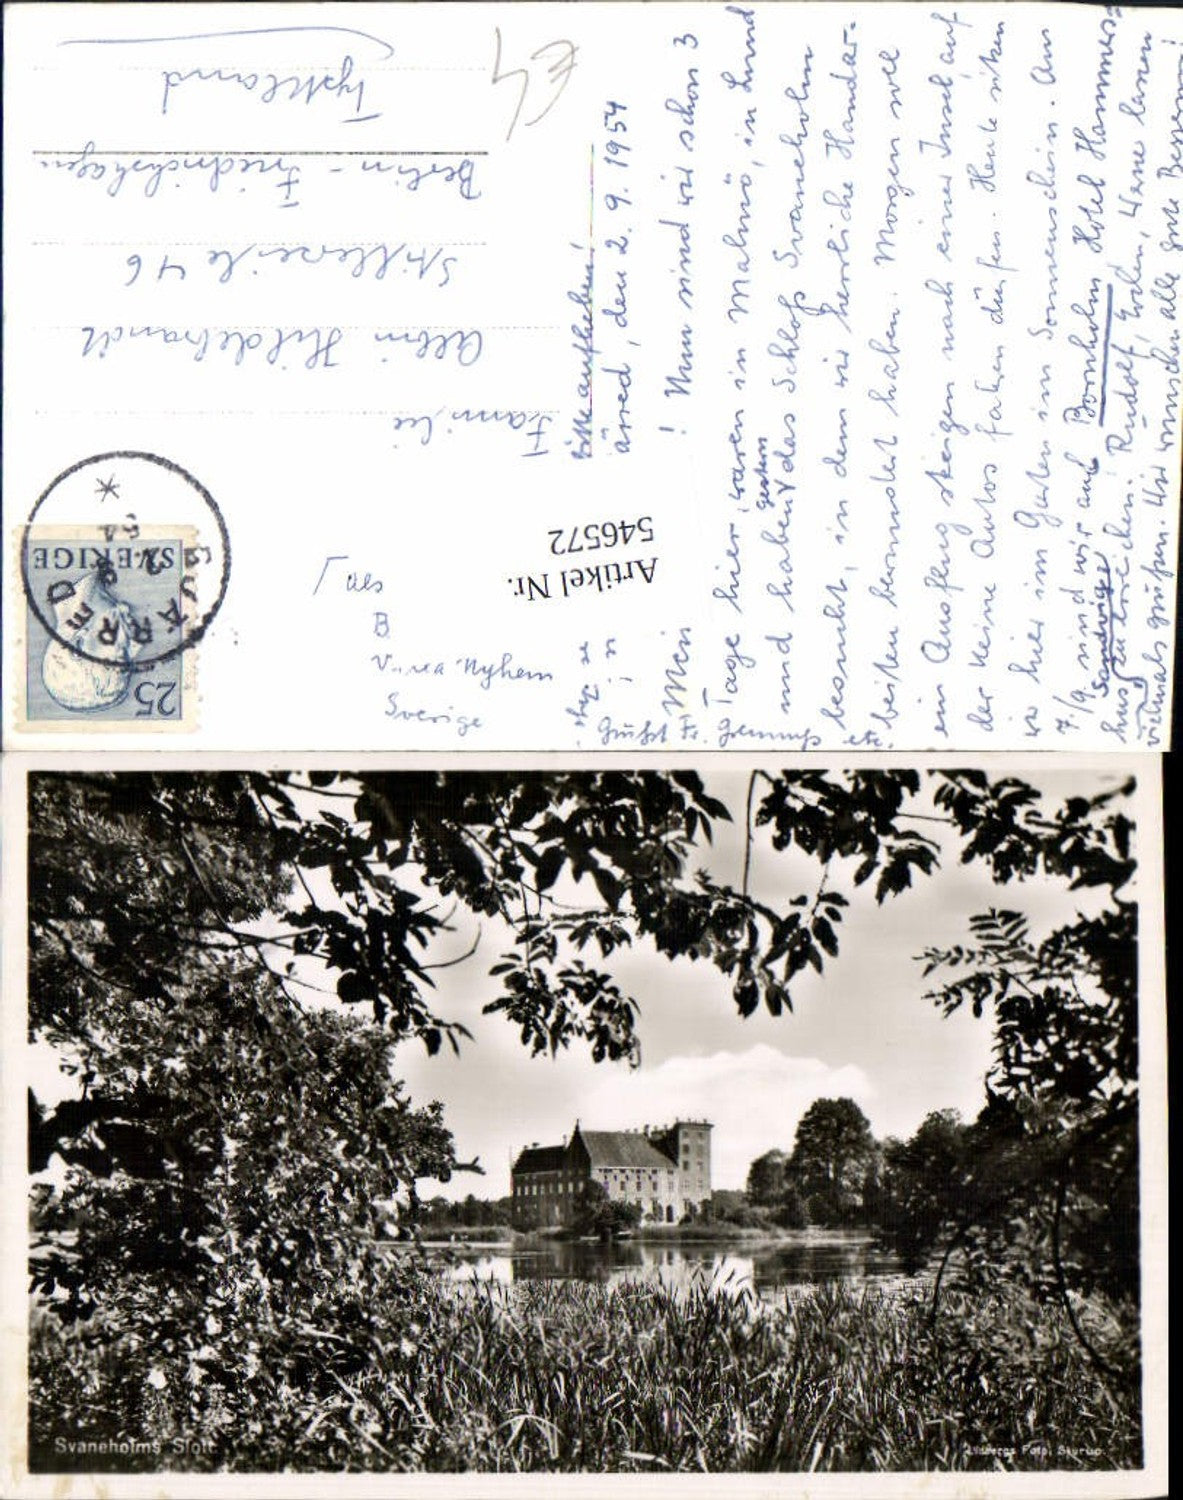 Bitte aufheben!
ärred, den 2. 9. 1954
! Nun sind wir schon 3
Tage hier, waren in Malmö, in Lund
und haben gestern das Schloß Svaneholm
besucht, in dem wir herrliche Handar-
beiten bewundert haben. Morgen soll
ein Ausflug steigen nach einer Insel, auf
der keine Autos fahren dürfen. Heute sitzen
wir hier im Garten im Sonnenschein. Am
7./9. sind wir auf Bornholm Hotel Hammers-
hus Sandvig zu erreichen. Rudolf, Werner lassen
vielmals grüßen. Wir wünschen alle gute Besserung!
Familie
Albin Hildebrandt
Stillerzeile 46
Berlin - Friedrichshagen
Tyskland
Sverige
SVERIGE
25
SVARRED
2
9
54
Artikel Nr.
546572
€4
Svaneholms Slott
Foto, Skurup.